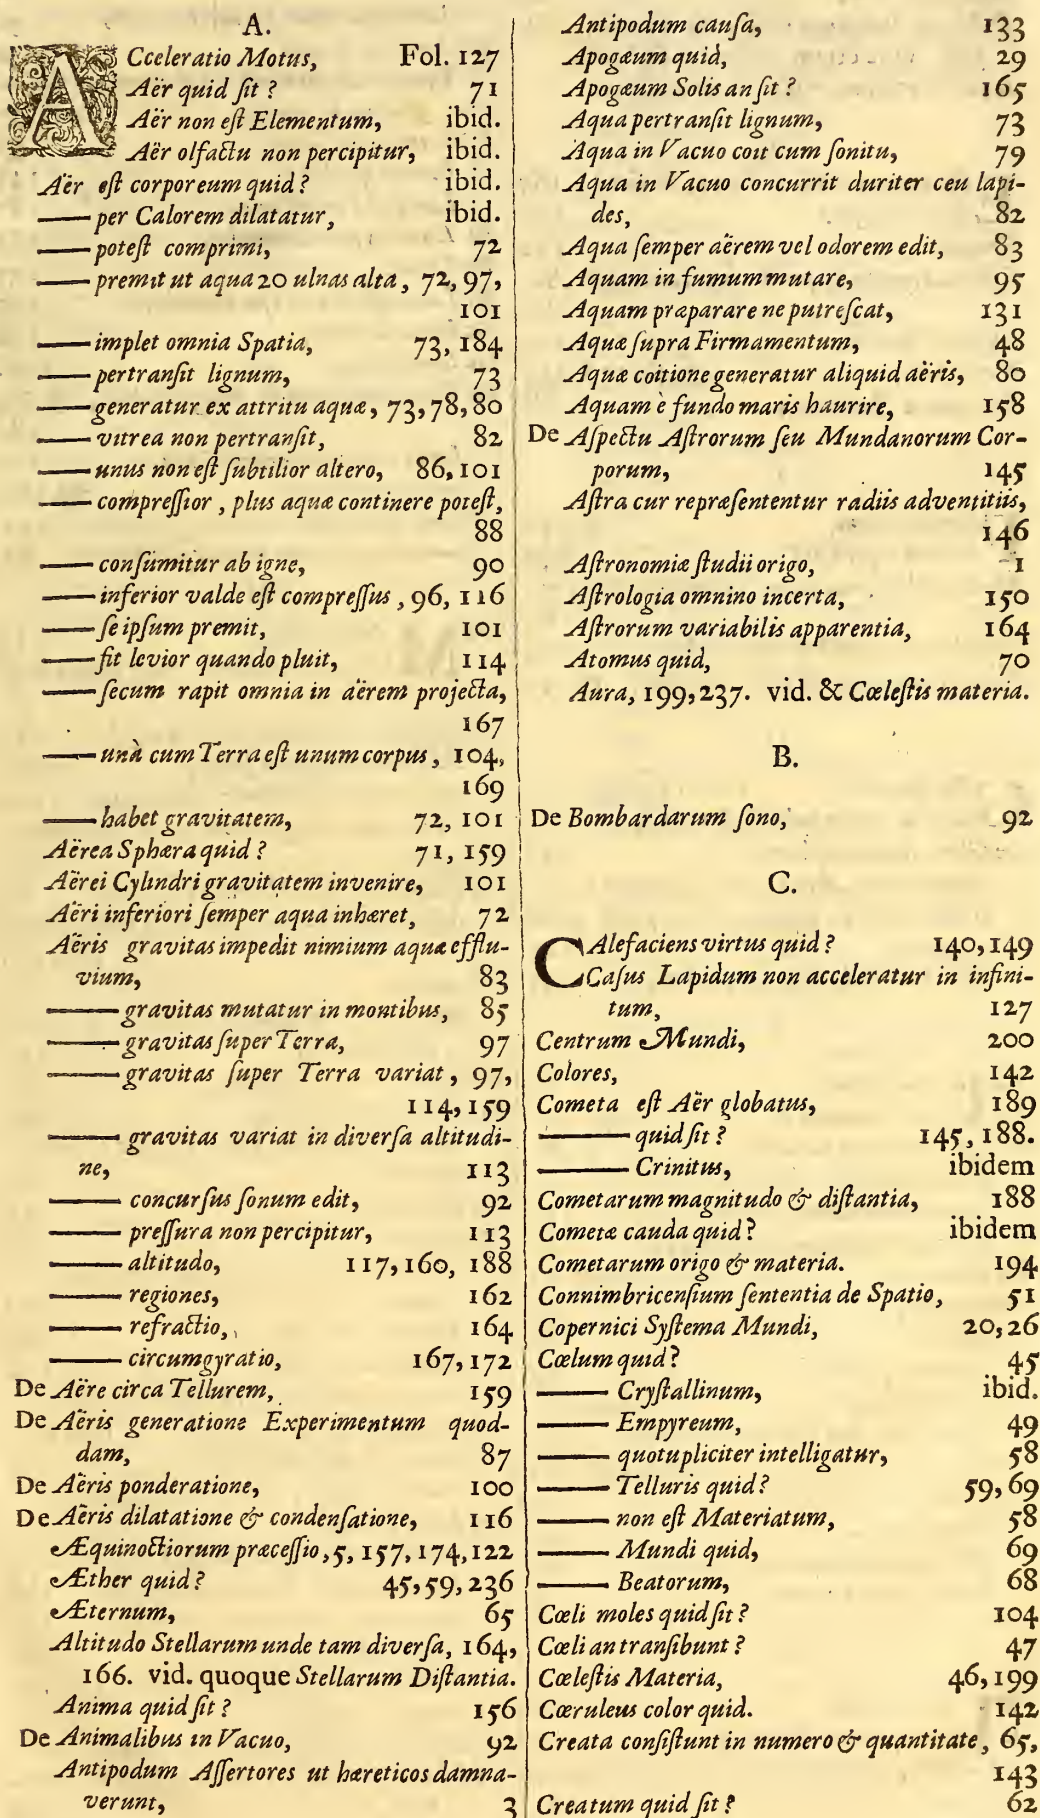 A.
ACceleratio Motus, Fol. 127
Aër quid ſit? 71
Aër non eſt Elementum, ibid.
Aër olfactu non percipitur, ibid.
Aër eſt corporeum quid? ibid.
—— per Calorem dilatatur, ibid.
—— poteſt comprimi, 72
—— premit ut aqua 20 ulnas alta, 72, 97,
101
—— implet omnia Spatia, 73, 184
—— pertranſit lignum, 73
—— generatur ex attritu aquæ, 73, 78, 80
—— vitrea non pertranſit, 82
—— unus non eſt ſubtilior altero, 86, 101
—— compreſſior, plus aquæ continere poteſt,
88
—— conſumitur ab igne, 90
—— inferior valde eſt compreſſus, 96, 116
—— ſe ipſum premit, 101
—— fit levior quando pluit, 114
—— ſecum rapit omnia in aërem projecta,
167
—— unà cum Terra eſt unum corpus, 104,
169
—— habet gravitatem, 72, 101
Aërea Sphæra quid? 71, 159
Aërei Cylindri gravitatem invenire, 101
Aëri inferiori ſemper aqua inhæret, 72
Aëris gravitas impedit nimium aquæ efflu-
vium, 83
—— gravitas mutatur in montibus, 85
—— gravitas ſuper Terra, 97
—— gravitas ſuper Terra variat, 97,
114, 159
—— gravitas variat in diverſa altitudi-
ne, 113
—— concurſus ſonum edit, 92
—— preſſura non percipitur, 113
—— altitudo, 117, 160, 188
—— regiones, 162
—— refractio, 164
—— circumgyratio, 167, 172
De Aëre circa Tellurem, 159
De Aëris generatione Experimentum quod-
dam, 87
De Aëris ponderatione, 100
De Aëris dilatatione & condenſatione, 116
Æquinoctiorum præceſſio, 5, 157, 174, 122
Æther quid? 45, 59, 236
Æternum, 65
Altitudo Stellarum unde tam diverſa, 164,
166. vid. quoque Stellarum Diſtantia.
Anima quid ſit? 156
De Animalibus in Vacuo, 92
Antipodum Aſſertores ut hæreticos damna-
verunt, 3
Antipodum cauſa, 133
Apogæum quid, 29
Apogæum Solis an ſit? 165
Aqua pertranſit lignum, 73
Aqua in Vacuo coit cum ſonitu, 79
Aqua in Vacuo concurrit duriter ceu lapi-
des, 82
Aqua ſemper aërem vel odorem edit, 83
Aquam in fumum mutare, 95
Aquam præparare ne putreſcat, 131
Aquæ ſupra Firmamentum, 48
Aquæ coitione generatur aliquid aëris, 80
Aquam è fundo maris haurire, 158
De Aſpectu Aſtrorum ſeu Mundanorum Cor-
porum, 145
Aſtra cur repræſententur radiis adventitiis,
146
Aſtronomiæ ſtudii origo, 1
Aſtrologia omnino incerta, 150
Aſtrorum variabilis apparentia, 164
Atomus quid, 70
Aura, 199, 237. vid. & Cœleſtis materia.
B.
De Bombardarum ſono, 92
C.
CAlefaciens virtus quid? 140, 149
Caſus Lapidum non acceleratur in infini-
tum, 127
Centrum Mundi, 200
Colores, 142
Cometa eſt Aër globatus, 189
—— quid ſit? 145, 188.
—— Crinitus, ibidem
Cometarum magnitudo & diſtantia, 188
Cometæ cauda quid? ibidem
Cometarum origo & materia. 194
Connimbricenſium ſententia de Spatio, 51
Copernici Syſtema Mundi, 20, 26
Cœlum quid? 45
—— Cryſtallinum, ibid.
—— Empyreum, 49
—— quotupliciter intelligatur, 58
—— Telluris quid? 59, 69
—— non eſt Materiatum, 58
—— Mundi quid, 69
—— Beatorum, 68
Cœli moles quid ſit? 104
Cœli an tranſibunt? 47
Cœleſtis Materia, 46, 199
Cœruleus color quid. 142
Creata conſiſtunt in numero & quantitate, 65,
143
Creatum quid ſit? 62